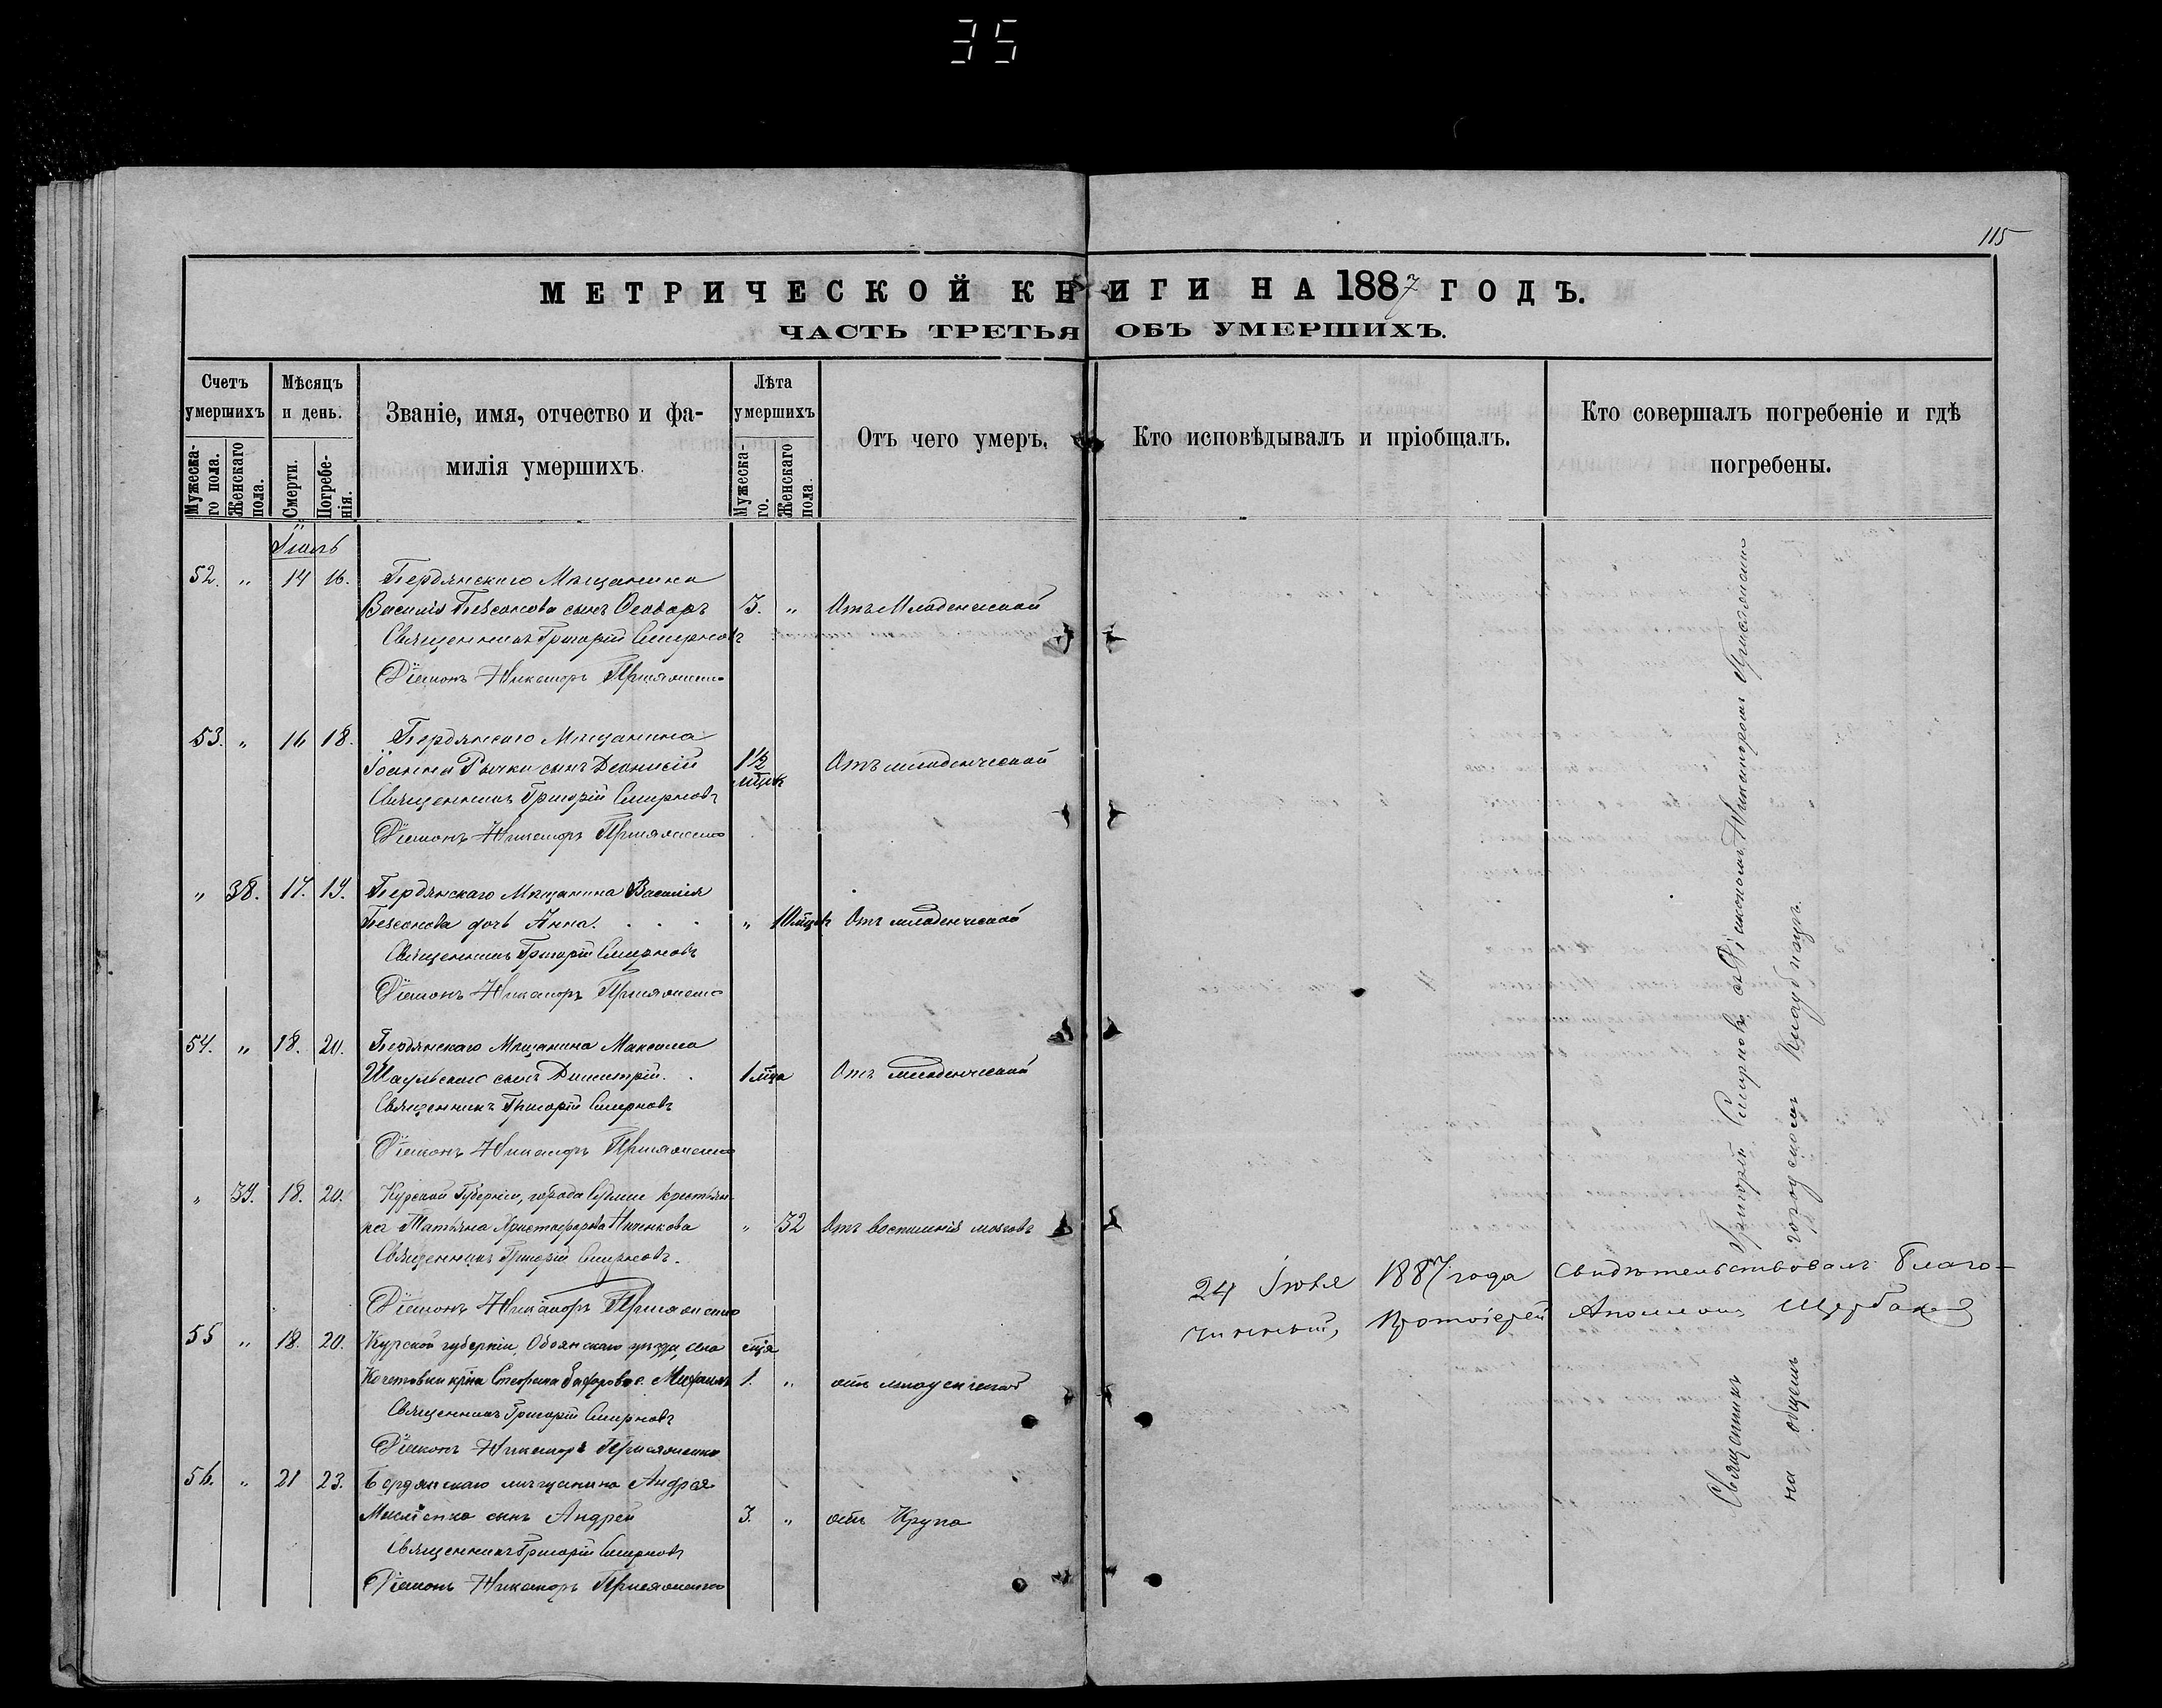 35
115
МЕТРИЧЕСКОЙ КНИГИ НА 1887 ГОДЪ.
ЧАСТЬ ТРЕТЬЯ ОБЪ УМЕРШИХЪ.
Счетъ умершихъ
Мужескаго пола.
Женскаго пола.
Мѣсяцъ и день.
Смерти.
Погребенія.
Званіе, имя, отчество и фамилія умершихъ.
Лѣта умершихъ
Мужескаго.
Женскаго пола.
Отъ чего умеръ.
Кто исповѣдывалъ и пріобщалъ.
Кто совершалъ погребеніе и гдѣ погребены.
Іюль
52. „ 14 16. Бердянскаго Мѣщанина
Василія Безсонова сынъ Ѳеодоръ 3. „ Отъ Младенческой
Священникъ Григорій Смирновъ
Діаконъ Никаноръ
53. „ 16 18. Бердянскаго Мѣщанина
Іоанна Рычка сынъ Діонисій 1½ мцъ Отъ младенческой
Священникъ Григорій Смирновъ
Діаконъ Никаноръ
„ 38. 17. 19. Бердянскаго Мѣщанина Василія
Безсонова дочь Анна. „ 10 Отъ младенческой
Священникъ Григорій Смирновъ
Діаконъ Никаноръ
54. „ 18. 20. Бердянскаго Мѣщанина Максима
сынъ Димитрій. 1 мца Отъ младенческой
Священникъ Григорій Смирновъ
Діаконъ Никаноръ
„ 39. 18. 20. Курской Губерніи, города Суджи крестьян-
ка Татьяна Христофорова „ 32 Отъ воспаленія мозговъ
Священникъ Григорій Смирновъ.
Діаконъ Никаноръ
55 „ 18. 20. Курской губерніи, Обоянскаго уѣзда, села
Кочетовки Стефана с. Михаилъ 1. „ отъ младенческой
Священникъ Григорій Смирновъ
Діаконъ Никаноръ
56. „ 21 23. Бердянскаго мѣщанина Андрея
сынъ Андрей 3. „ отъ Крупа
Священникъ Григорій Смирновъ
Діаконъ Никаноръ
Священникъ Григорій Смирновъ съ Діакономъ Никаноромъ
на общемъ городскомъ кладбищѣ.
24 Іюля 1887 года свидѣтельствовалъ Благо-
чинный, Протоіерей